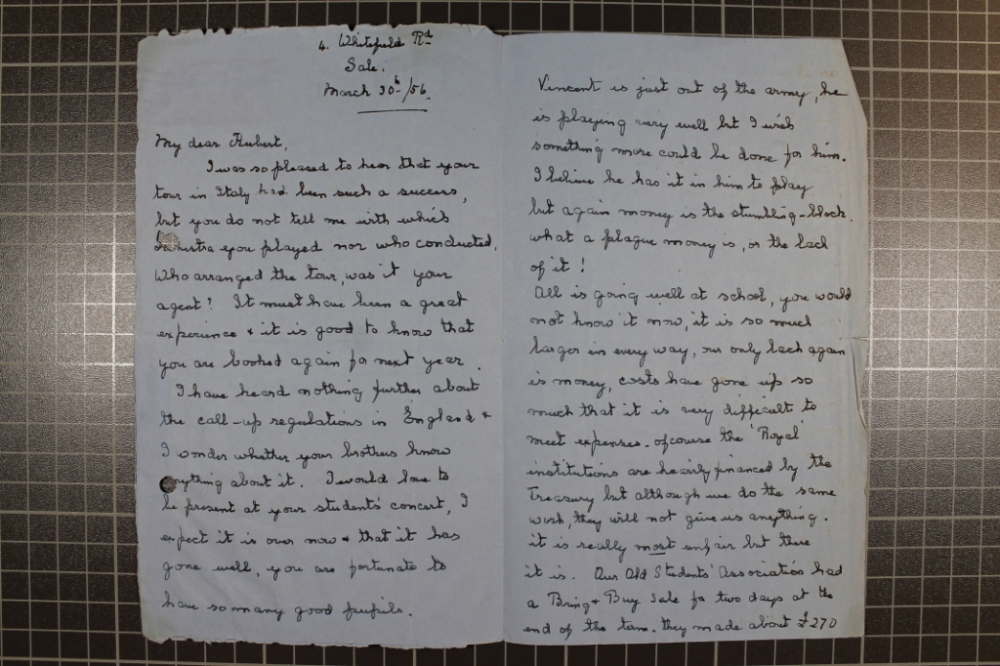 4. Whitefield Rd
Sale.
March 30th/56.
My dear Hubert,
I was so pleased to hear that your
tour in Italy had been such a success,
but you do not tell me with which
you played nor who conducted.
Who arranged the tour, was it your
agent? It must have been a great
experience & it is good to know that
you are booked again for next year.
I have heard nothing further about
the call-up regulations in England &
I wonder whether your brothers know
anything about it. I would love to
be present at your students' concert, I
expect it is over now & that it has
gone well, you are fortunate to
have so many good pupils.
Vincent is just out of the army, he
is playing very well but I wish
something more could be done for him.
I believe he has it in him to play
but again money is the stumbling-block.
what a plague money is, or the lack
of it!
All is going well at school, you would
not know it now, it is so much
larger in every way, our only lack again
is money, costs have gone up so
much that it is very difficult to
meet expenses. of course the 'Royal'
institutions are heavily financed by the
Treasury but although we do the same
work, they will not give us anything.
it is really most unfair but there
it is. Our Old Students' Association had
a Bring & Buy Sale for two days at the
end of the term. they made about £270